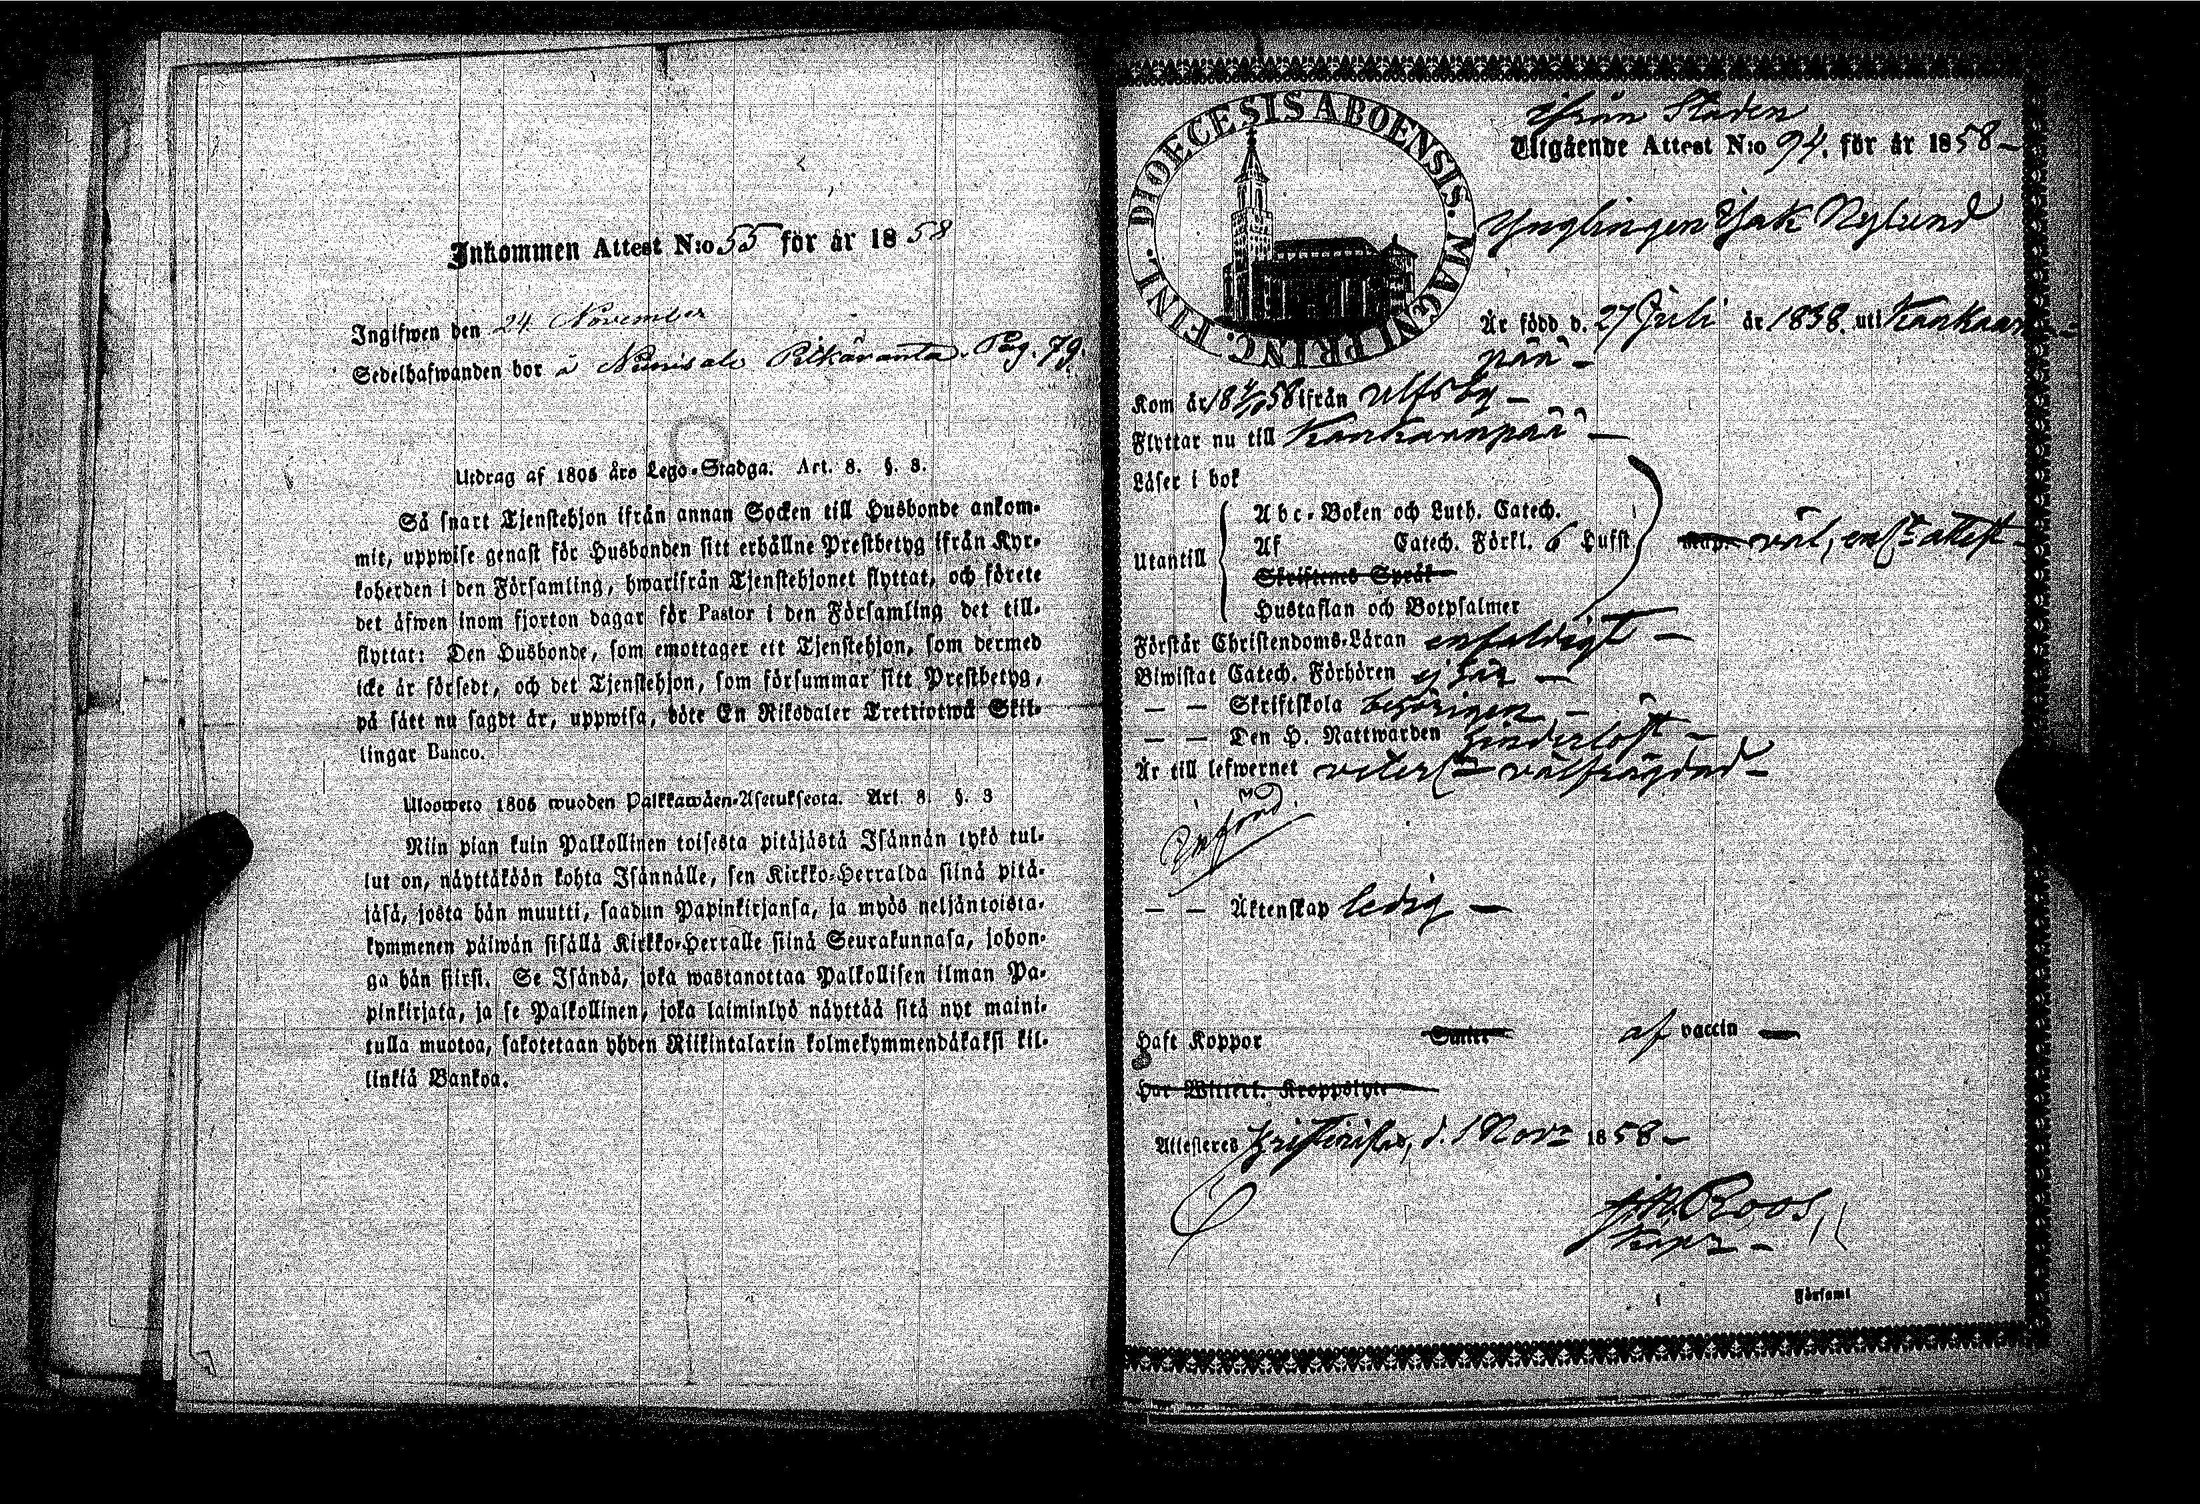 Inkommen Attest N:o 55 för år 1858
Ingifwen den 24 November
Sedelhafwanden bor å Niinisalo Pitkäranta. Pag. 79.
Utdrag af 1805 års Lego-Stadga. Art. 8. §. 3.
Så snart Tjenstehjon ifrån annan Socken till Husbonde ankom-
mit, uppwise genast för Husbonden sitt erhållne Prestbetyg ifrån Kyr-
koherden i den Församling, hwarifrån Tjenstehjonet flyttat, och förete
det äfwen inom fjorton dagar för Pastor i den Församling det till-
flyttat: Den Husbonde, som emottager ett Tjenstehjon, som dermed
icke är försedt, och det Tjenstehjon, som försummar sitt Prestbetyg,
på sätt nu sagdt är, uppwisa, böte En Riksdaler Trettiotwå Skil-
lingar Banco.
Ulosweto 1805 wuoden Palkkawäen-Asetuksesta. Art. 8. §. 3
Niin pian kuin Palkollinen toisesta pitäjästä Isännän tykö tul-
lut on, näyttäköön kohta Isännälle, sen Kirkko-Herralda siinä pitä-
jäsä, josta hän muutti, saadun Papinkirjansa, ja myös neljäntoista-
kymmenen päiwän sisällä Kirkko-Herralle siinä Seurakunnasa, johon-
ga hän siirsi. Se Isändä, joka wastanottaa Palkollisen ilman Pa-
pinkirjata, ja se Palkollinen, joka laiminlyö näyttää sitä nyt maini-
tulla muotoa, sakotetaan yhden Riikintalarin kolmekymmendäkaksi kil-
linkiä Bankoa.
DIOECESIS ABOENSIS. MAGNI PRINC. FINL.
ifrån Staden
Utgående Attest N:o 94. för år 1858
Ynglingen Isak Nylund
Är född d. 27 Juli år 1838. uti Kankaan
pää
Kom år 18 58 ifrån Ulfsby
Flyttar nu till Kankaanpää
Läser i bok
Utantill
Abc-Boken och Luth. Catech.
Af Catech. Förkl. 6 Lufst
Skriftenes Språk
Hustaflan och Botpsalmer
väl, enl. attest
Förstår Christendoms-Läran enfaldigt
Biwistat Catech. Förhören ej här
— — Skriftskola behörigen
— — Den H. Nattwarden hinderlöst
Är till lefwernet välfrägdad
Införd
— — Äktenskap ledig
Haft Koppor af vaccin
Har Wittert. Kroppslyte
Attesteras Kristinestad, d. 1 Nov. 1858
Roos
Kapn
i Församl